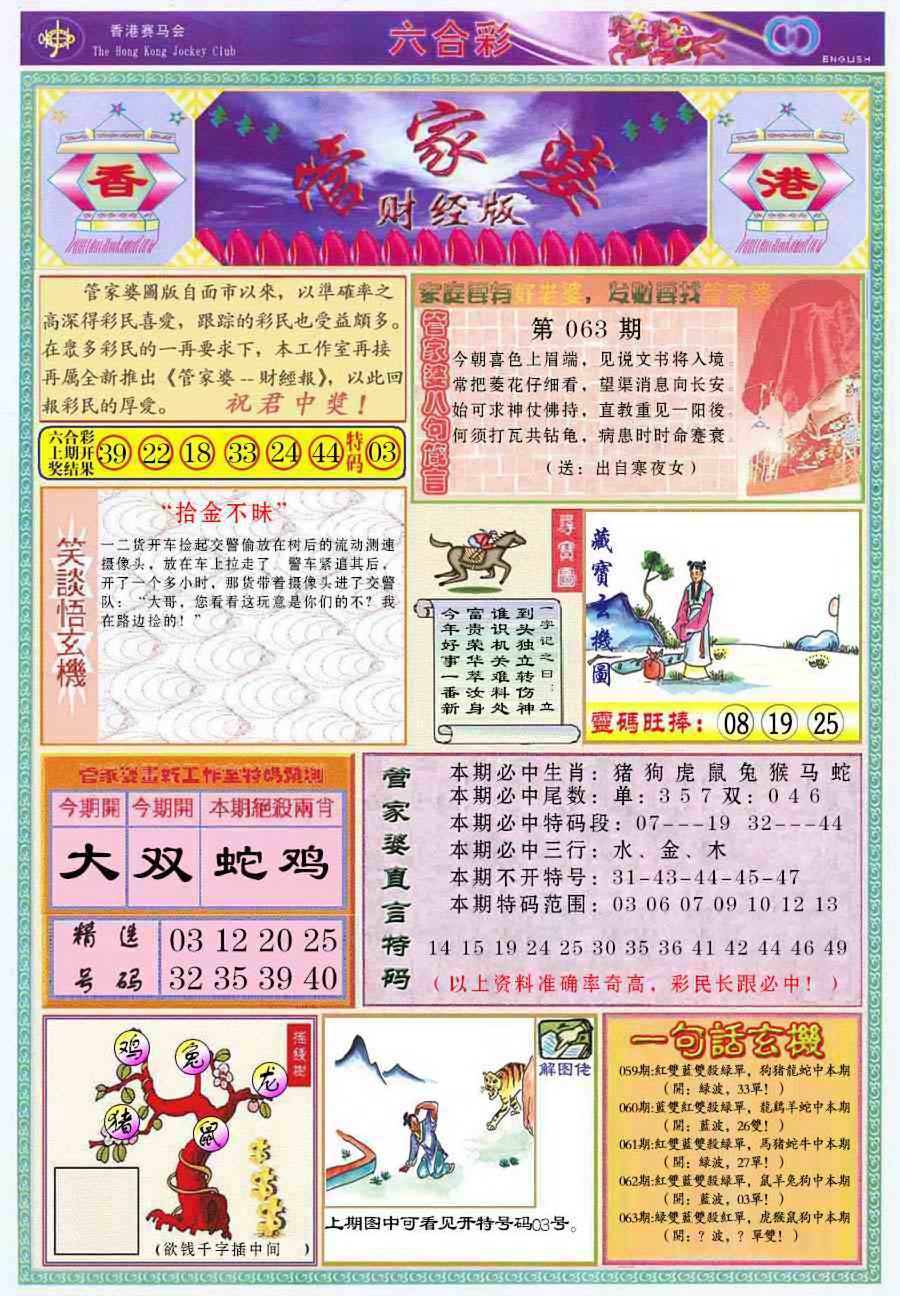 香港赛马会
The Hong Kong Jockey Club
六合彩
ENGLISH
香
管家婆
财经版
港
管家婆圖版自面市以來，以準確率之
高深得彩民喜爱，跟踪的彩民也受益頗多。
在眾多彩民的一再要求下，本工作室再接
再属全新推出《管家婆--財經報》，以此回
報彩民的厚愛。 祝君中奬！
六合彩
上期开
奖结果
39 22 18 33 24 44 特码 03
家庭要有好老婆，发财要找管家婆
管家婆八句箴言
第 063 期
今朝喜色上眉端，见说文书将入境。
常把菱花仔细看，望渠消息向长安。
始可求神仗佛持，直教重见一阳後。
何须打瓦共钻龟，病患时时命蹇衰。
（送：出自寒夜女）
笑談悟玄機
“拾金不昧”
一二货开车捡起交警偷放在树后的流动测速
摄像头，放在车上拉走了，警车紧追其后，
开了一个多小时，那货带着摄像头进了交警
队：“大哥，您看看这玩意是你们的不？我
在路边捡的！”
尋寶圖
一字记之曰：立
到头独立转伤神
谁识机关难料处
富贵荣华萃汝身
今年好事一番新
藏寶玄機圖
靈碼旺捧：08 19 25
管家婆畫新工作室特碼預測
今期開 今期開 本期絕殺兩肖
大 双 蛇 鸡
精选
号码
03 12 20 25
32 35 39 40
管家婆直言特码
本期必中生肖：猪 狗 虎 鼠 兔 猴 马 蛇
本期必中尾数：单：3 5 7 双：0 4 6
本期必中特码段：07---19 32---44
本期必中三行：水、金、木
本期不开特号：31-43-44-45-47
本期特码范围：03 06 07 09 10 12 13
14 15 19 24 25 30 35 36 41 42 44 46 49
（以上资料准确率奇高，彩民长跟必中！）
摇錢樹
鸡
兔
龙
猪
鼠
（欲钱千字插中间 ）
解图佬
上期图中可看见开特号码03号。
一句話玄機
059期:紅雙藍雙殺绿單，狗猪龍蛇中本期
（開：綠波，33單！）
060期:藍雙紅雙殺绿單，龍鷄羊蛇中本期
（開：藍波，26雙！）
061期:紅雙藍雙殺绿單，馬猪蛇牛中本期
（開：綠波，27單！）
062期:紅雙藍雙殺绿單，鼠羊兔狗中本期
（開：藍波，03單！）
063期:绿雙藍雙殺紅單，虎猴鼠狗中本期
（開：？波，？單雙！）